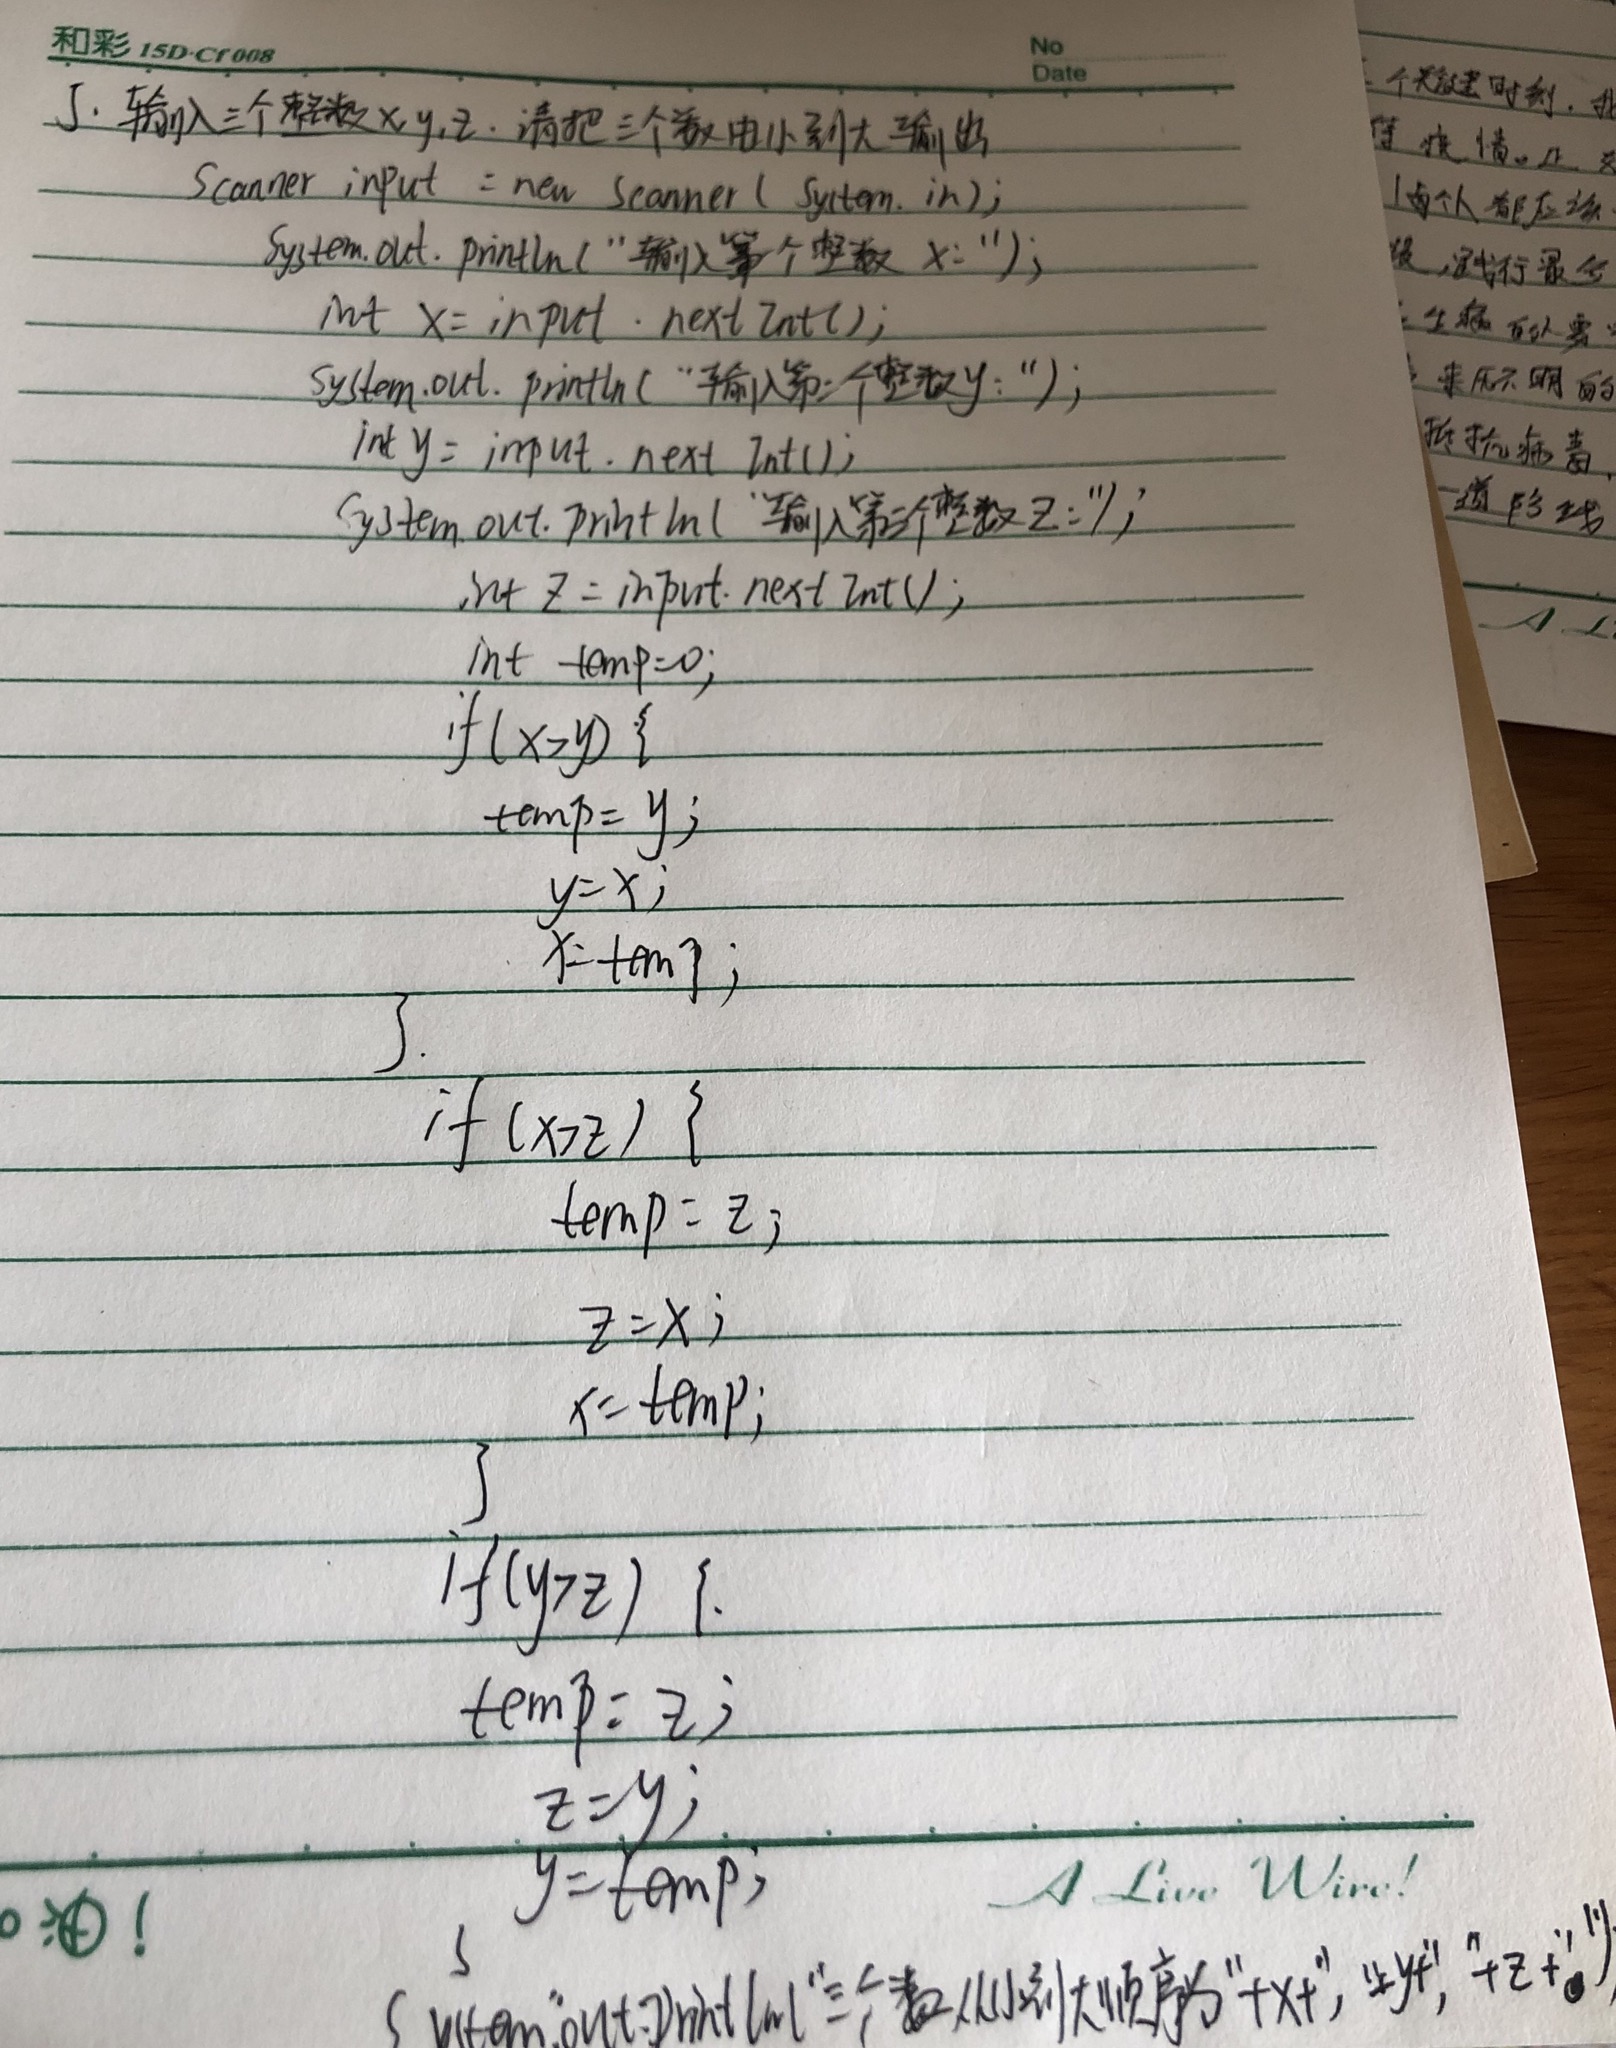 和彩 15D·Cr008
No
Date
5. 输入三个整数x,y,z. 请把三个数由小到大输出
Scanner input = new Scanner( System. in);
System.out. println("输入第一个整数 x:");
int x= input . next Int();
System.out. println( "输入第二个整数y:");
int y= input. next Int();
System.out.println( "输入第三个整数z:");
int z = input. next Int();
int temp=0;
if(x>y) {
temp= y;
y=x;
x=temp;
}.
if (x>z) {
temp= z;
z=x;
x=temp;
}
if(y>z) {.
temp= z;
z=y;
y=temp;
A Live Wire!
}
System.out.println("三个数从小到大顺序为"+x+", "+y+", "+z+"。")
个关键时刻.
情。
每个人都应该
来历不明的
抵抗病毒,
一道防线